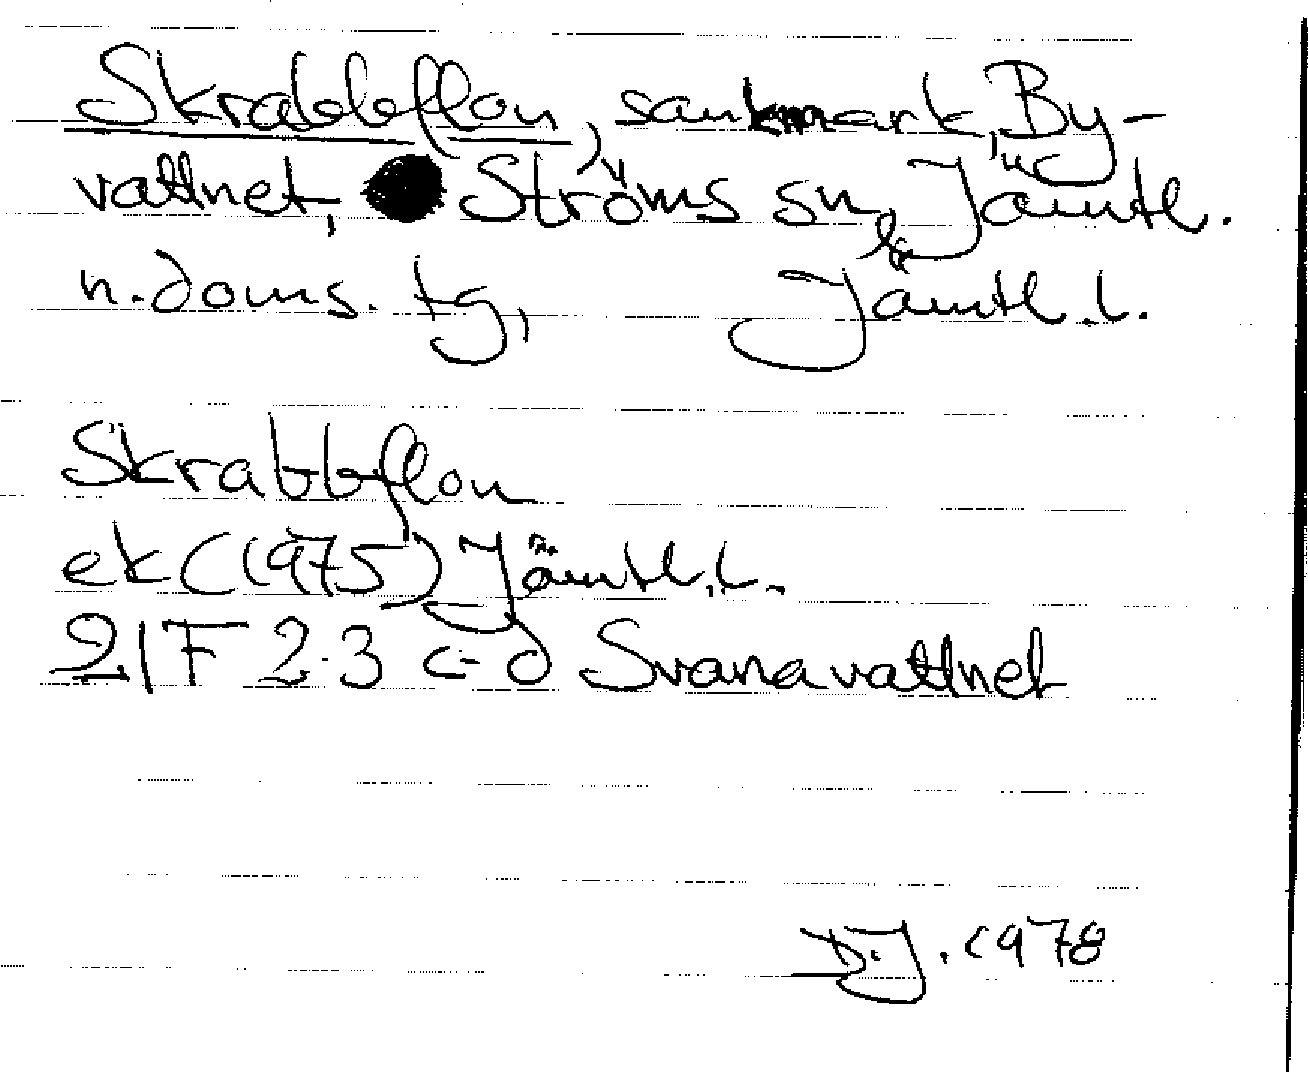 Skrabbflon, sankmark, By-
vattnet, Ströms sn, Jämtl.
n. doms. tg, Jämtl. l.
Skrabbflon
ek (1975) Jämtl. l.
21F 2-3 c-d Svanavattnet
D.J. 1978